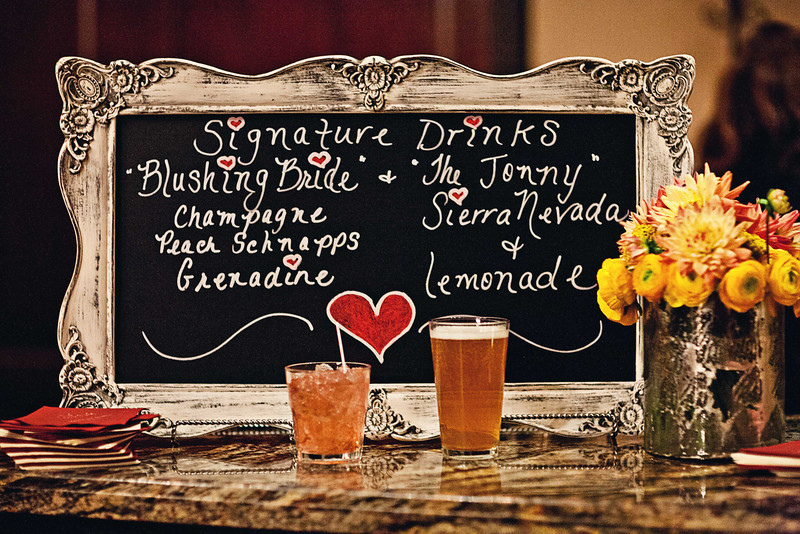 Signature Drinks
"Blushing Bride" & "The Jonny"
Champagne
Peach Schnapps
Grenadine
Sierra Nevada
&
lemonade